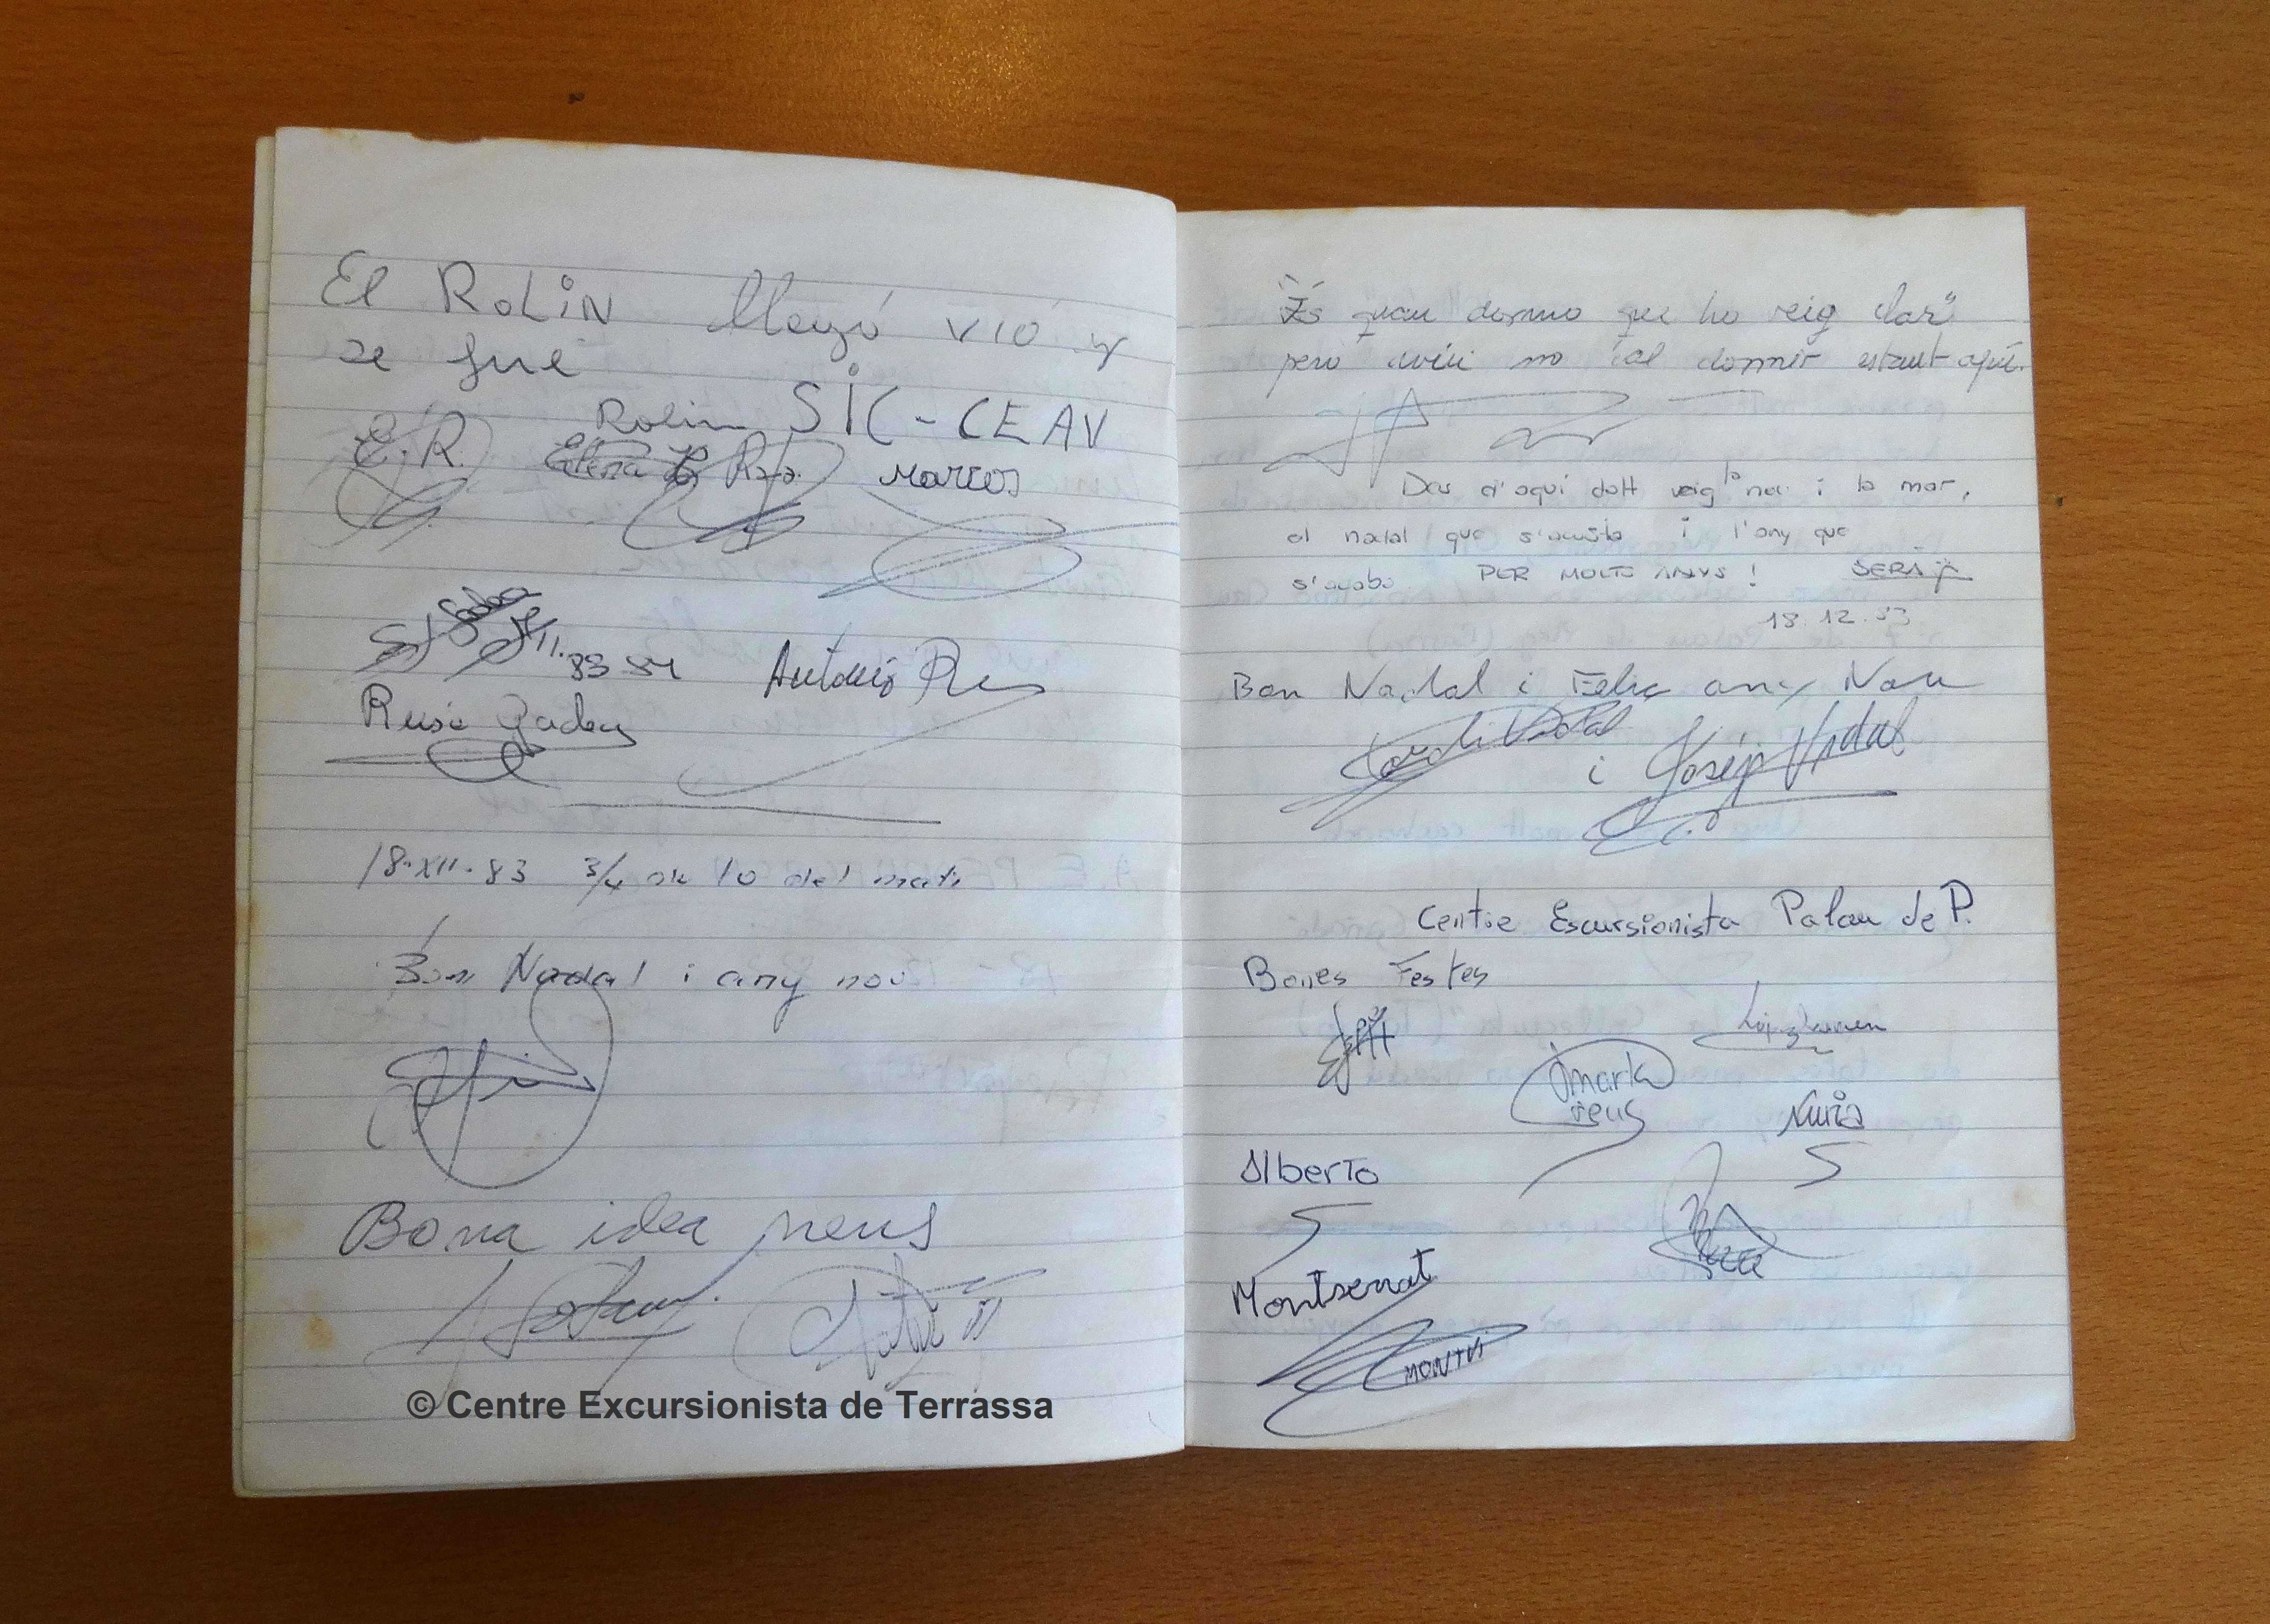 El Rolin llegó vió y
se fué
Rolin SIC-CEAV
E.R. Elena R. Marcos
83 84 Antonio
Rusé
18·XII·83 3/4 de 10 del mati
Bon Nadal i any nou
Bona idea neus
© Centre Excursionista de Terrassa
"És quan dormo que ho veig clar"
pero avui no cal dormir estant aquí.
Des d'aquí dalt veig la neu i la mar,
el nadal que s'acosta i l'any que
s'acaba PER MOLTS ANYS! SERAJ
18.12.83
Bon Nadal i Feliç any Nou
Jordi Vidal
i Josép Vidal
Centre Escursionista Palau de P.
Bones Festes
marta
reus
Nuria
Alberto
Montserrat
MONTS